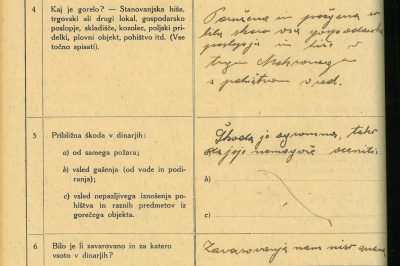 4
Kaj je gorelo? — Stanovanjska hiša,
trgovski ali drugi lokal, gospodarsko
poslopje, skladišče, kozolec, poljski pri-
delki, plovni objekt, pohištvo itd. (Vse
točno spisati).
Porušena in požgana so
bila skoro vsa gospodarska
poslopja in hiše v
trgu Mokronog in
s pohištvom vred.
5
Približna škoda v dinarjih:
a) od samega požara;
b) vsled gašenja (od vode in podi-
ranja);
c) vsled nepazljivega iznošenja po-
hištva in raznih predmetov iz
gorečega objekta.
Škoda je ogromna, tako
da jo je nemogoče oceniti.
b)
c)
6
Bilo je li zavarovano in za katero
vsoto v dinarjih?
Zavarovanja nam niso znana